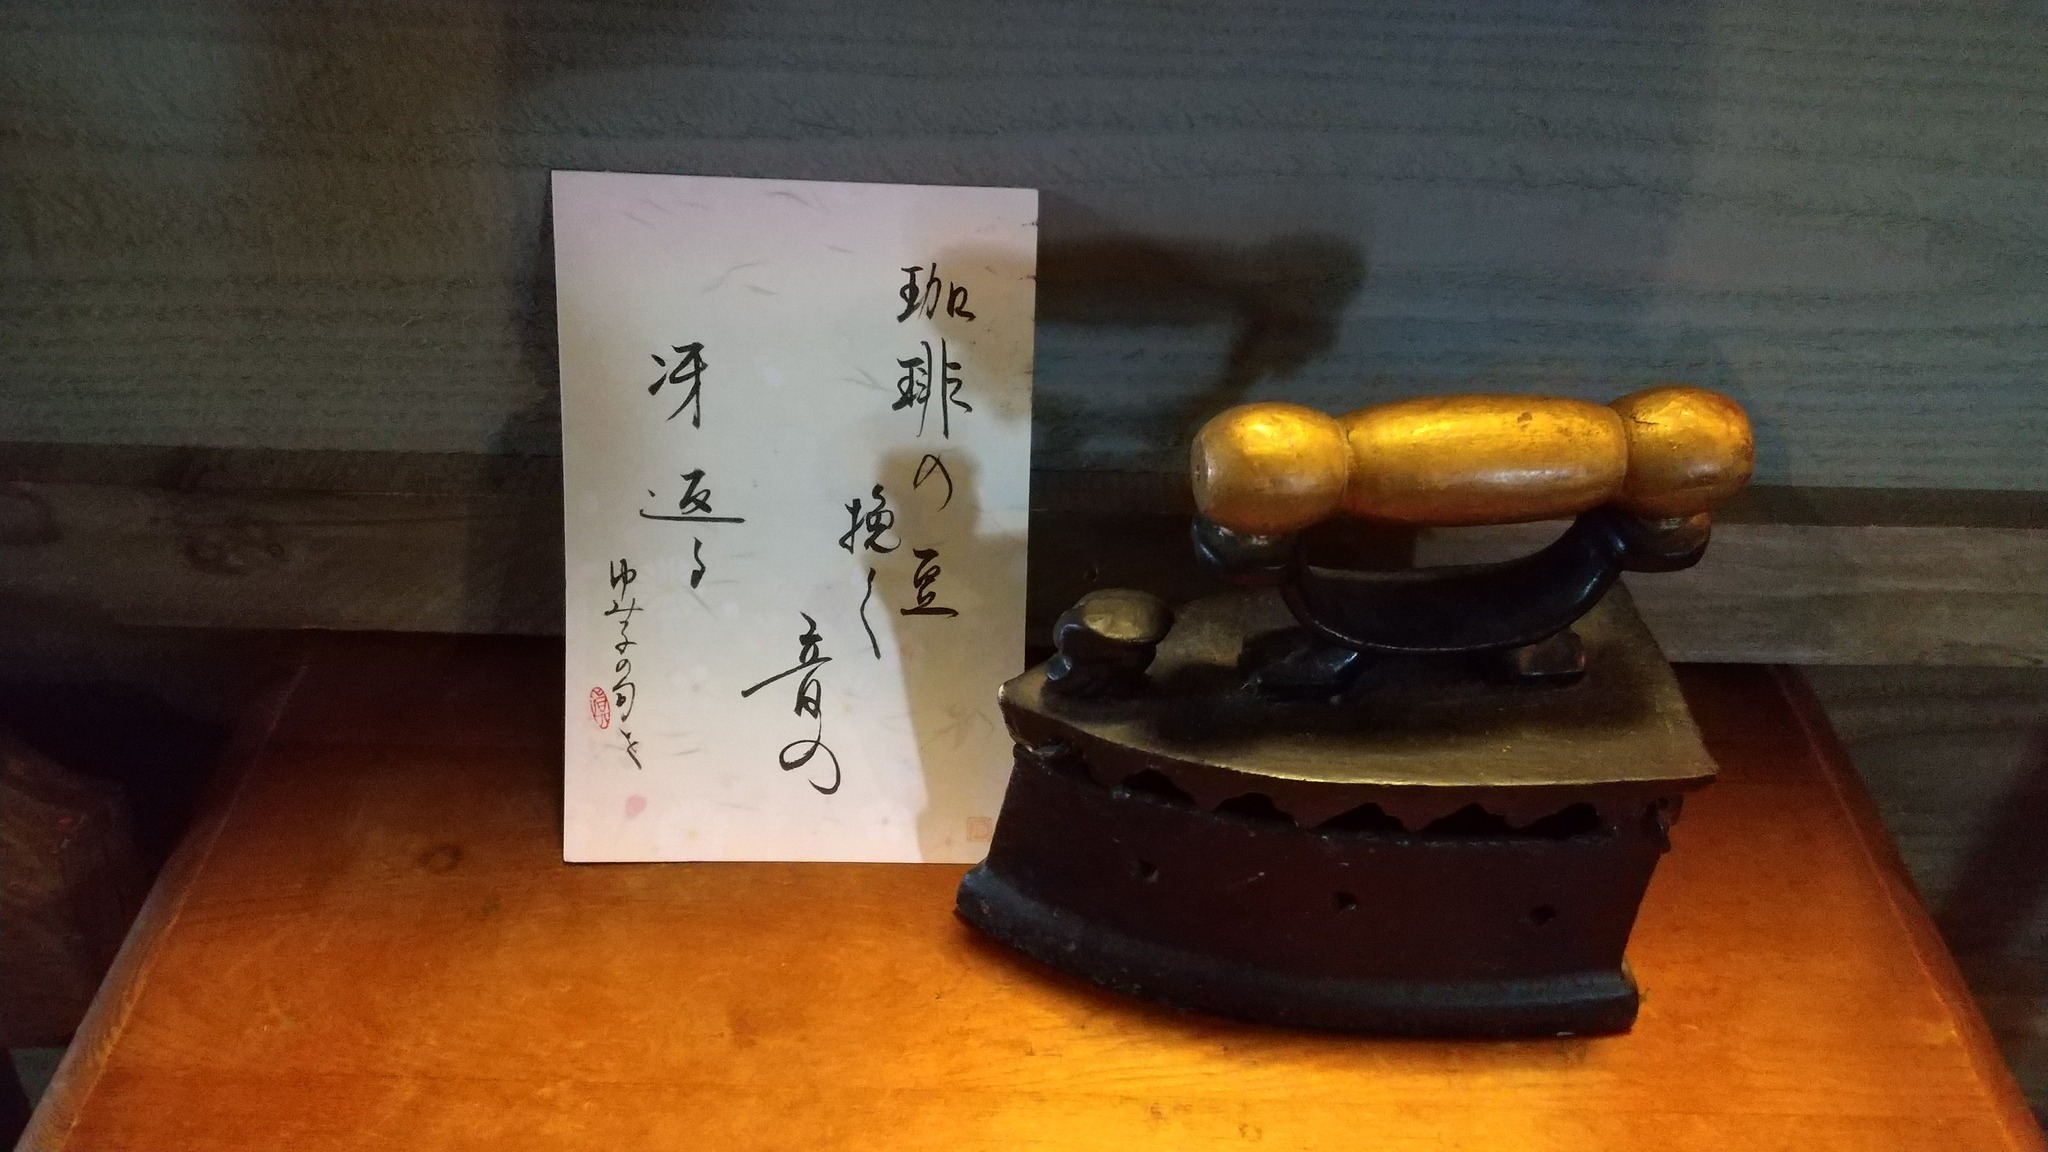 珈琲の豆
挽く
音の
冴返る
ゆみ子の句